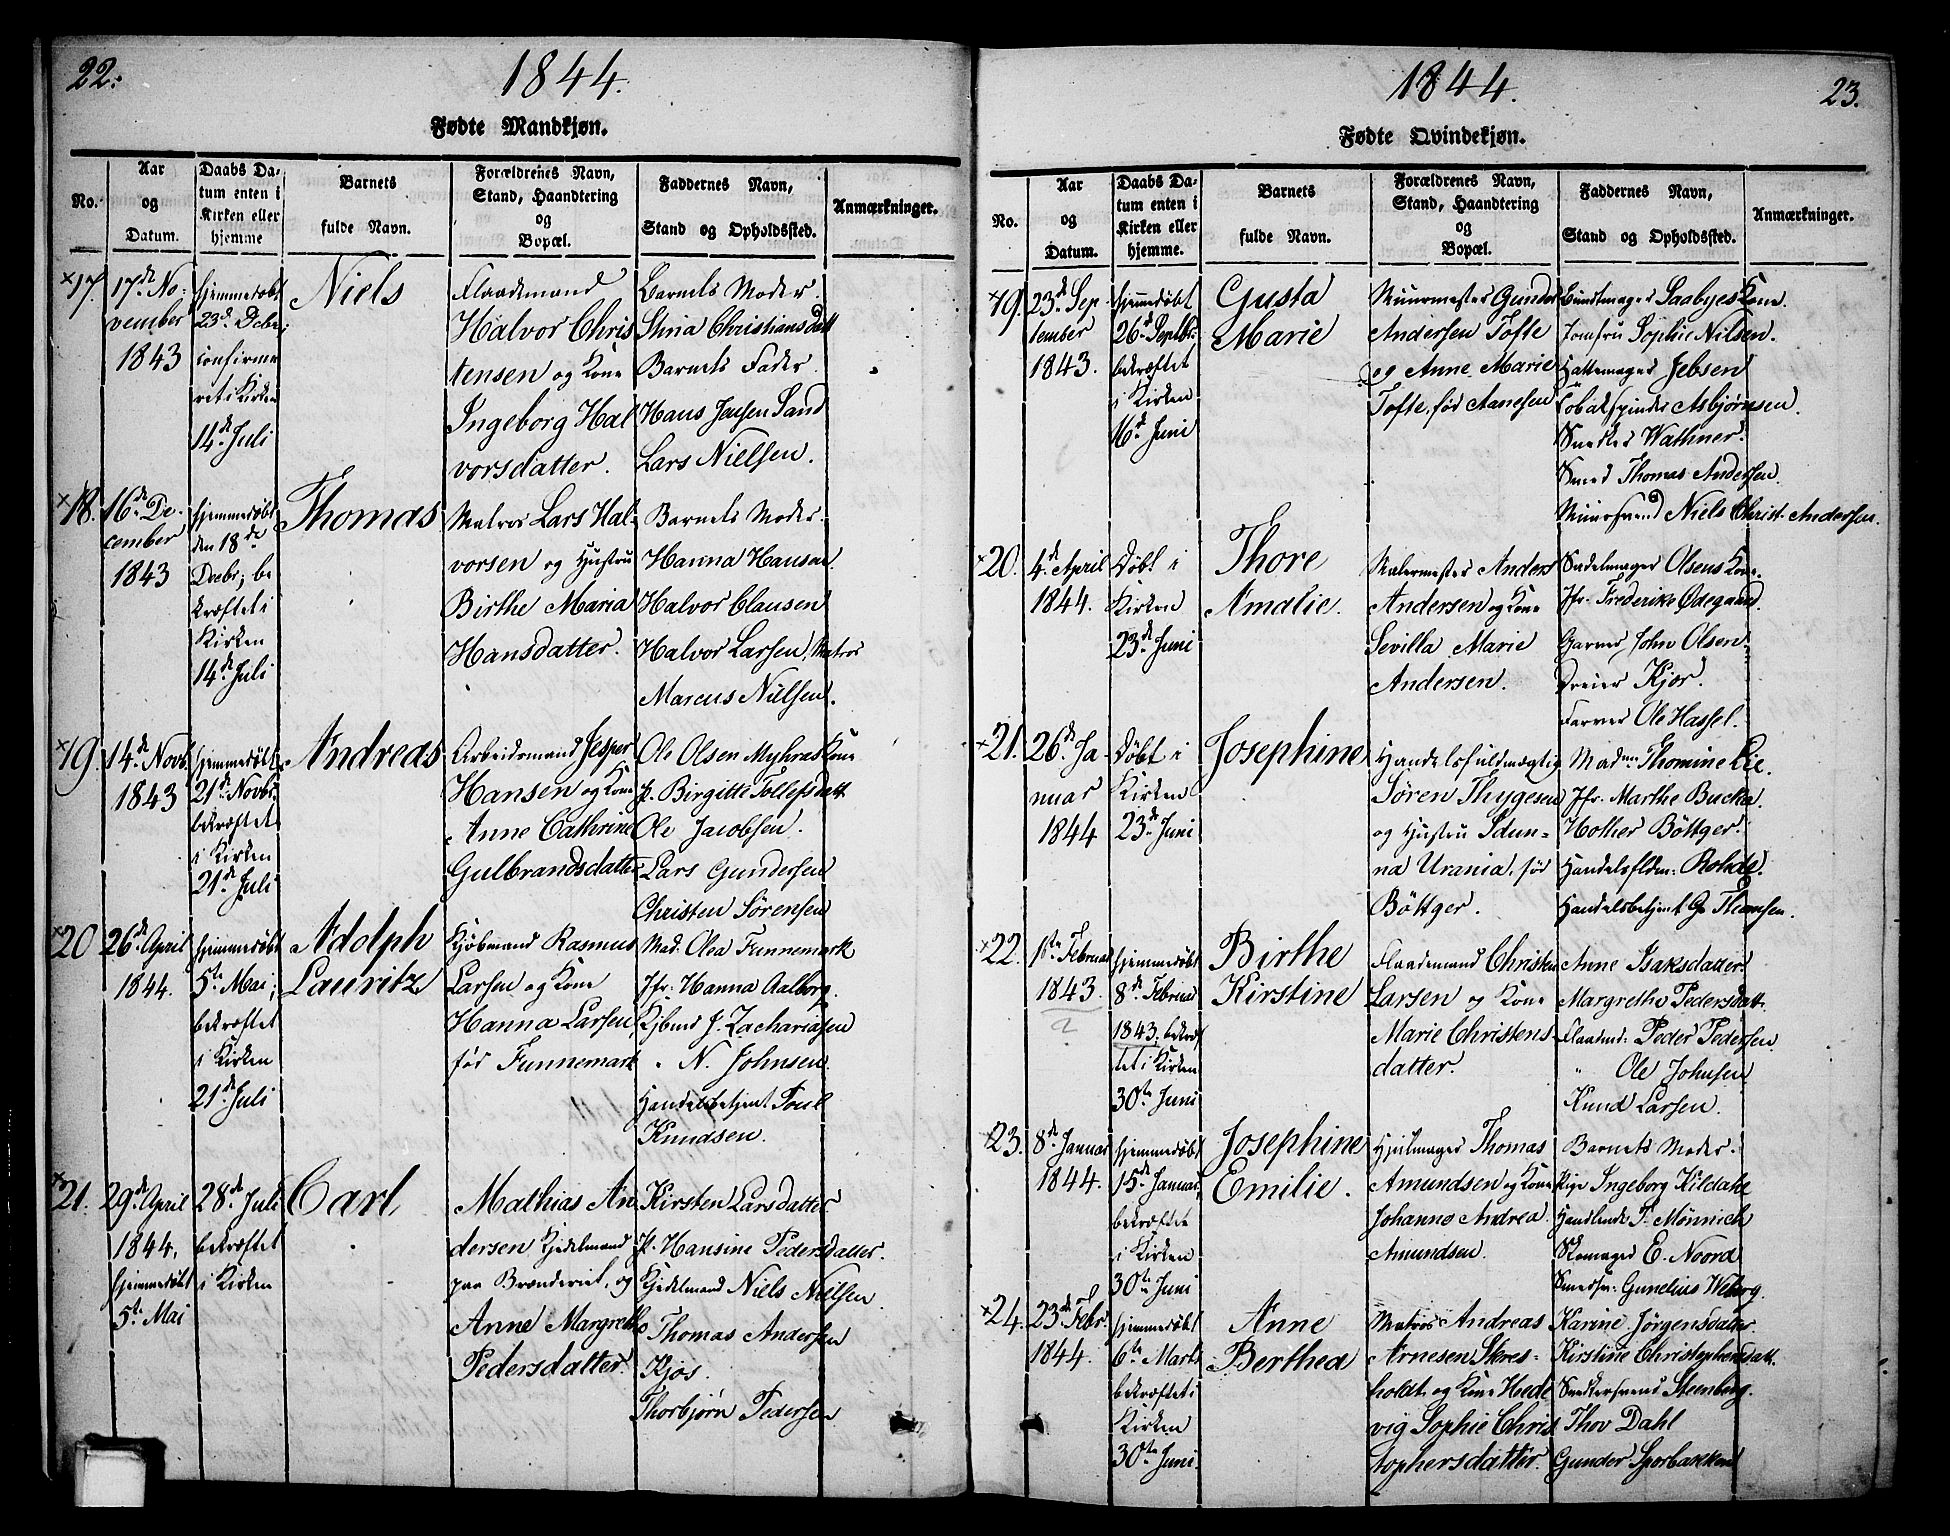 22.
1844.
Fødte Mandkjøn.
No.
Aar
og
Datum.
Daabs Da-
tum enten i
Kirken eller
hjemme
Barnets
fulde Navn.
Forældrenes Navn,
Stand, Haandtering
og
Bopæl.
Faddernes Navn,
Stand og Opholdssted.
Anmærkninger.
×17.
17de No-
vember
1843
hjemmedøbt
23d. Decbr;
confirme
ret i Kirken
14de Juli
Niels
Flaademand
Halvor Chris
tensen og Kone
Ingeborg Hal
vorsdatter.
Barnets Moder
Stina Christiansdatt
Barnets Fader.
Hans Jensen Sand
Lars Nielsen.
×18.
16de De-
cember
1843
hjemmedøbt
den 18de
Decbr; be
kræftet i
Kirken
14de Juli
Thomas
Matros Lars Hal-
vorsen og Hustru
Birthe Maria
Hansdatter.
Barnets Moder.
Hanna Hansen
Halvor Clausen
Halvor Larsen, Matros
Marcus Nielsen.
×19.
14de Novb.
1843
hjemmedøbt
21de Novbr.
bekræftet
i Kirken
21de Juli
Andreas
Arbeidsmand Jesper
Hansen og Kone
Anne Cathrine
Gulbrandsdatter
Ole Olsen Myhras Kone
p. Birgitte Tollefsdatt
Ole Jacobsen.
Lars Gundersen
Christen Sørensen
×20
26de April
1844.
hjemmedøbt
5te Mai;
bekræftet
i Kirken
21de Juli
Adolph
Lauritz
Kjøbmand Rasmus
Larsen og Kone
Hanna Larsen,
før Funnemark
Mad. Olea Funnemark
Jfr. Hanna Aalborg.
Kjbmd J. Zachariasen
" N. Johnsen.
Handelsbetjent Poul
Knudsen.
×21.
29de April
1844,
hjemmedøbt
5te Mai
28de Juli
bekræftet
i Kirken
Carl
Mathias An
dersen Kjedelmand
paa Brænderiet, og
Anne Margrethe
Pedersdatter.
Kirsten Larsdatter
p. Hansine Pedersdatter.
Kjedelmand Niels Nielsen
Thomas Andersen
Kjøs.
Thorbjørn Pedersen
1844.
23.
Fødte Qvindekjøn.
No.
Aar
og
Datum.
Daabs Da-
tum enten i
Kirken eller
hjemme.
Barnets
fulde Navn.
Forældrenes Navn,
Stand, Haandtering
og
Bopæl.
Faddernes Navn,
Stand og Opholdssted.
Anmærkninger.
×19.
23de Sep-
tember
1843.
hjemmedøbt
26de Septbr.
bekræftet
i Kirken
16de Juni
Gusta
Marie
Muurmester Gunder
Andersen Tofte
og Anne Marie
Tofte, før Aanesen
Bundtmager Saabyes Kone.
Jomfru Sophie Nilsen.
Hattemager Jebsen
Tobakspinder Asbjørnsen.
Snedker Wathner.
Smed Thomas Andersen.
Muursvend Niels Christ. Andersen.
×20.
4de April
1844.
Døbt i
Kirken
23de Juni
Thore
Amalie.
Malermester Anders
Andersen og Kone
Sevilla Marie
Andersen.
Sadelmager Olsens Kone.
Jfr. Frederikke Ødegaard.
Garver John Olsen.
Dreier Kjør.
Farver Ole Hassel.
×21.
26de Ja-
nuar
1844
Døbt i
Kirken
23de Juni
Josephine
Handelsfuldmægtig
Søren Thygesen
og Hustru Idun-
na Urania, før
Bøttger.
Madme Thomine Lie.
Jfr. Marthe Bucka.
Hother Bøttger.
Handelsfldm: Rohde.
Handelsbetjent G. Thomsen.
×22.
1ste Februar
1843.
hjemmedøbt
8de Februar
1843. bekræf
tet i Kirken
30te Juni
Birthe
Kirstine
Flaademand Christen
Larsen og Kone
Marie Christens
datter.
Anne Isaksdatter.
Margrethe Pedersdatt.
Flaadmd: Peder Pedersen
" Ole Johnsen
Knud Larsen.
23.
8de Januar
1844.
hjemmedøbt
15de Januar,
bekræftet
i Kirken
30te Juni
Josephine
Emilie.
Hjulmager Thomas
Amundsen og Kone
Johanne Andrea
Amundsen.
Barnets Moder.
Pige Ingeborg Kildahl
Handlende P. Mønnich
Skomager E. Noord
Smedsv: Gunelius Weborg.
×24.
23de Febr.
1844.
hjemmedøbt
6te Marts
bekræftet i
Kirken
30te Juni.
Anne
Berthea
Matros Andreas
Arnesen Skres-
holdt og Kone Hede
vig Sophie Chris
tophersdatter.
Karine Jørgensdatter.
Kirstine Christophersdatt.
Snedkersvend Steenberg.
Thov Dahl
Gunder Sporbakken